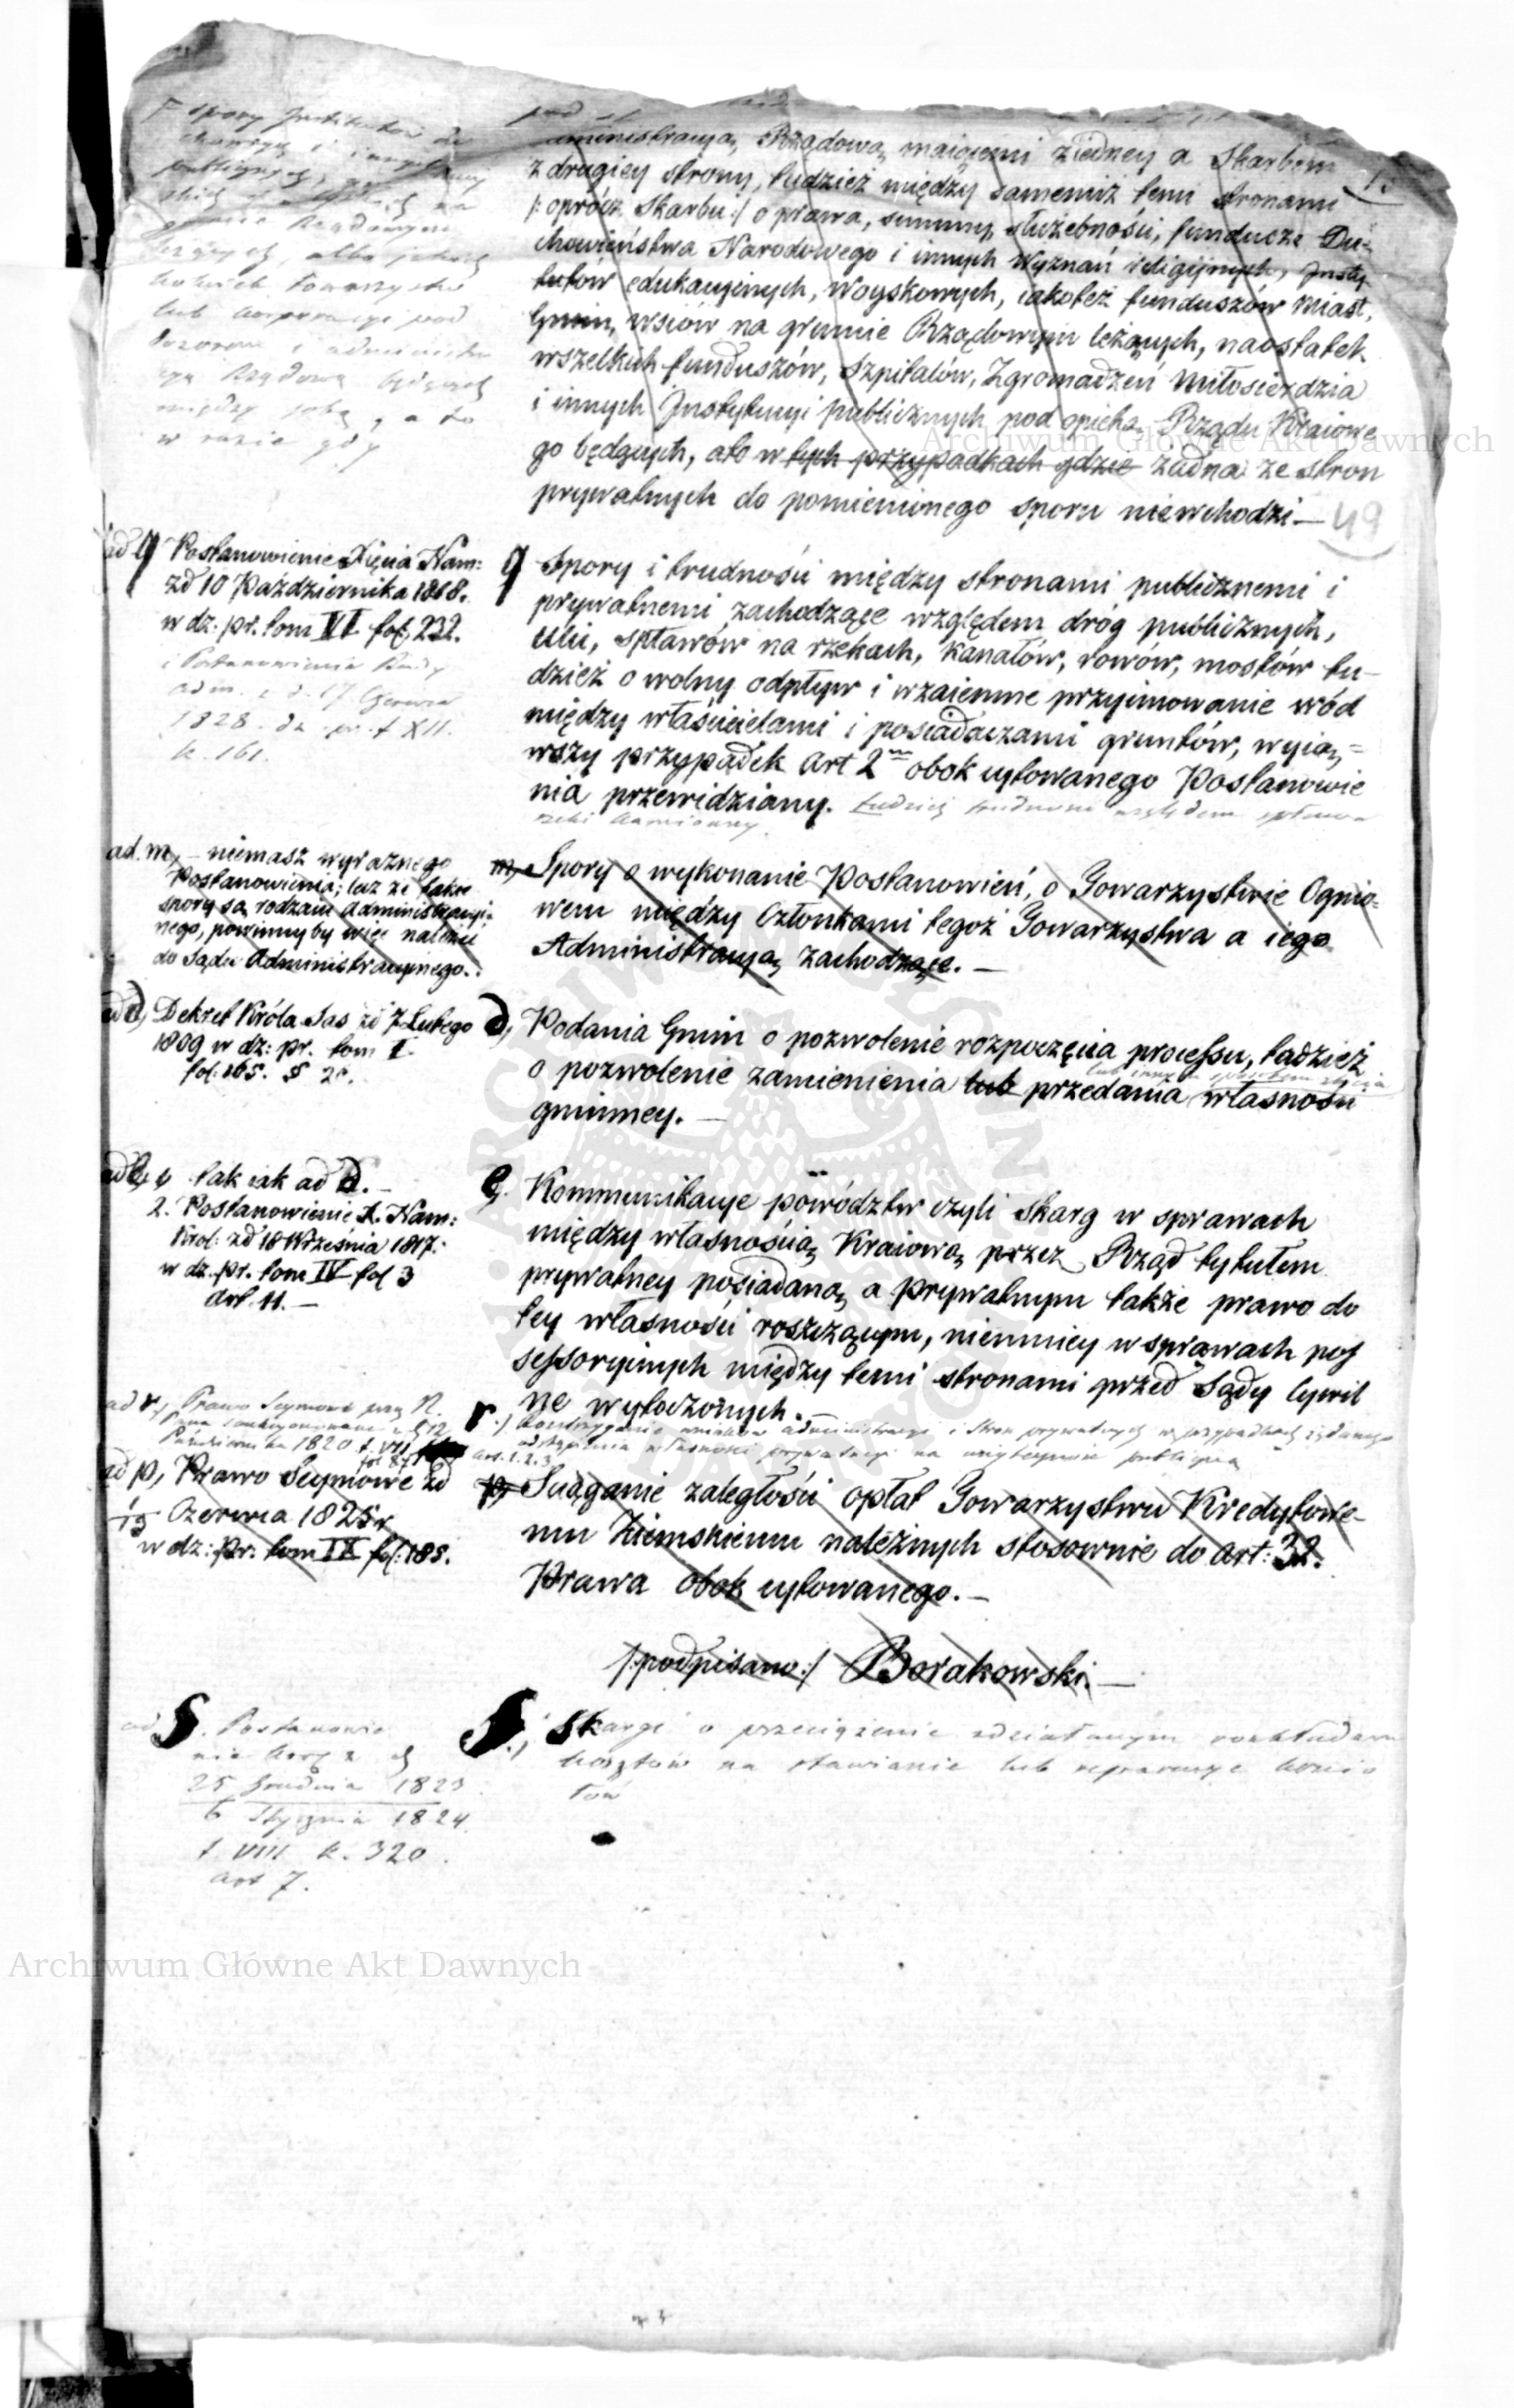 F spory Instytutów du
publicznych,
gruncie Rządowym
leżących albo jakich
kolwiek towarzystw
lub korporacyi pod
dozorem i administra
cyą Rządową będących
między sobą, a to
w razie gdy
pod
ministracyą Rządową maiącemi z iedney a Skarbem
z drugiey strony, tudzież między samemiż temi stronami
/: oprócz Skarbu :/ o prawa, summy, służebności, fundusze Du-
chowieństwa Narodowego i innych Wyznań religijnych, Insty-
tutów edukacyinych, Woyskowych, iakoteż funduszów Miast,
Gmin, wsiów na gruncie Rządowym leżących, naostatek
wszelkich funduszów, Szpitalów, Zgromadzeń Miłosierdzia
i innych Instytucyi publicznych pod opieką Rządu Kraiowe
go będących, ato w tych przypadkach gdzie żadna ze stron
prywatnych do pomienionego sporu niewchodzi.—
49
ad q Postanowienie Xięcia Nam:
zd 10 Października 1818.
w dz: pr. tom VI fol; 232.
i Postanowienie Rady
adm. z d. 17. Czerwca
1828. dz. pr. t XII.
k. 161.
q Spory i trudności między stronami publicznemi i
prywatnemi zachodzące względem dróg publicznych,
ulic, spławów na rzekach, kanałów, rowów, mostów tu-
dzież o wolny odpływ i wzaiemne przyimowanie wód
między właścicielami i posiadaczami gruntów, wyią=
wszy przypadek Art 2m obok cytowanego Postanowie
nia przewidziany. tudzież trudności względem spławu
rzeki Kamionny.
ad. m, — niemasz wyraznego
Postanowienia; lecz że takie
spory są rodzaiu Administracyi-
nego, powinnyby więc należeć
do Sądu Administracyinego.
m, Spory o wykonanie Postanowień, o Towarzystwie Ognio-
wem między Członkami tegoż Towarzystwa a iego
Administracyą zachodzące.—
ad d, Dekret Króla Sas zd 7 Lutego
1809 w dz: pr. tom I.
fol: 165. § 20.
d, Podania Gmin o pozwolenie rozpoczęcia processu, tudzież
o pozwolenie zamienienia lub przedania własności
lub innym sposobem zbycia
gminney.—
ad e, 1 tak iak ad d.—
2. Postanowienie X. Nam:
Król: zd 18 Września 1817.
w dz. pr. tom IV fol 3
Art. 11.—
e. Kommunikacye powództw czyli skarg w sprawach
między własnością Kraiową przez Rząd tytułem
prywatney posiadaną a prywatnym także prawo do
tey własności roszczącym, niemniey w sprawach pos
sessoryinych między temi stronami przed Sądy Cywil
ne wytoczonych.—
ad r, Prawo Seymowe przez N.
Pana sankcyonowane z d 12
Października 1820 t. VII
r.) Rozstrzyganie wniosków administracyi i stron prywatnych w przypadkach żądanego
odstąpienia własności prywatney na użyteczność publiczną
art. 1. 2. 3
ad p, Prawo Seymowe zd
1/13 Czerwca 1825 r.
w dz: pr: tom IX fol: 185.
p, Sciąganie zaległości opłat Towarzystwu Kredytowe-
mu Ziemskiemu należnych stosownie do Art: 32.
Prawa obok cytowanego.—
/:podpisano:/ Borakowski.—
ad S. Postanowie
nie Król z d
25 Grudnia 1823
6 Stycznia 1824
t VIII k. 320.
art 7.
S.) Skargi o przeciążenie zdziałanym rozkładem
kosztów na stawianie lub reparacye kościo
łów
Archiwum Główne Akt Dawnych
Archiwum Główne Akt Dawnych
ARCHIWUM GŁÓWNE AKT DAWNYCH